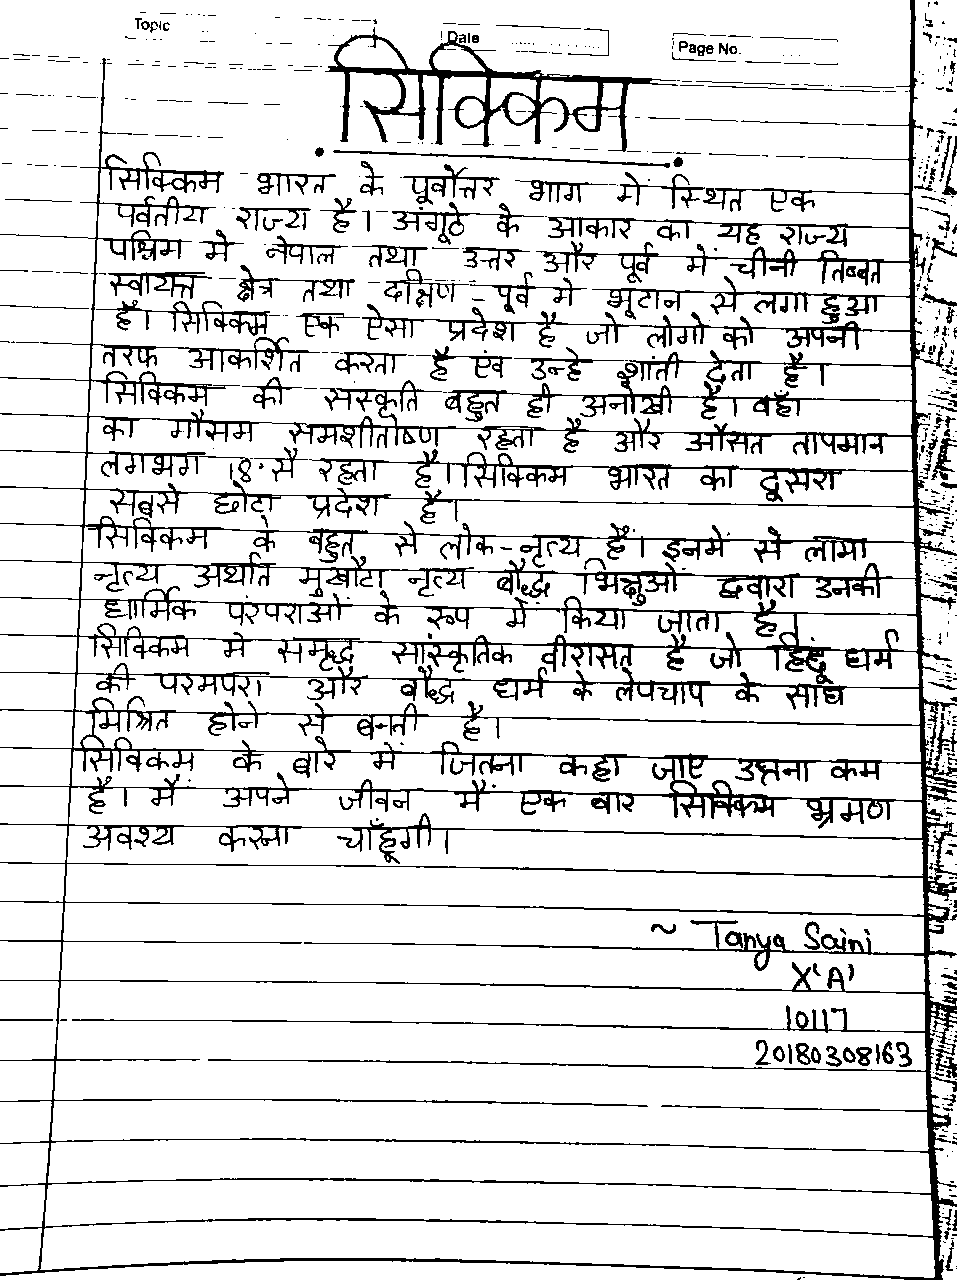 Topic
Date
Page No.
सिक्किम
सिक्किम भारत के पूर्वोत्तर भाग में स्थित एक
पर्वतीय राज्य है। अंगूठे के आकार का यह राज्य
पश्चिम में नेपाल तथा उत्तर और पूर्व में चीनी तिब्बत
स्वायत्त क्षेत्र तथा दक्षिण-पूर्व में भूटान से लगा हुआ
है। सिक्किम एक ऐसा प्रदेश है जो लोगो को अपनी
तरफ आकर्शित करता है एंव उन्हे शांती देता है।
सिक्किम की संस्कृति बहुत ही अनोखी है। वहाँ
का मौसम समशीतोष्ण रहता है और औसत तापमान
लगभग 18॰ सै रहता है। सिक्किम भारत का दूसरा
सबसे छोटा प्रदेश है।
सिक्किम के बहुत से लोक-नृत्य हैं। इनमें से लामा
नृत्य अर्थात मुखौटा नृत्य बौद्ध भिक्षुओं द्ववारा उनकी
धार्मिक परंपराओं के रूप में किया जाता है।
सिक्किम में समृद्ध सांस्कृतिक वीरासत है जो हिंदू धर्म
की परमपरा और बौद्ध धर्म के लेपचाप के साथ
मिश्रित होने से बनती है।
सिक्किम के बारे में जितना कहा जाए उतना कम
है। मैं अपने जीवन में एक बार सिक्किम भ्रमण
अवश्य करना चाँहूगी।
~ Tanya Saini
X'A'
10117
20180308163